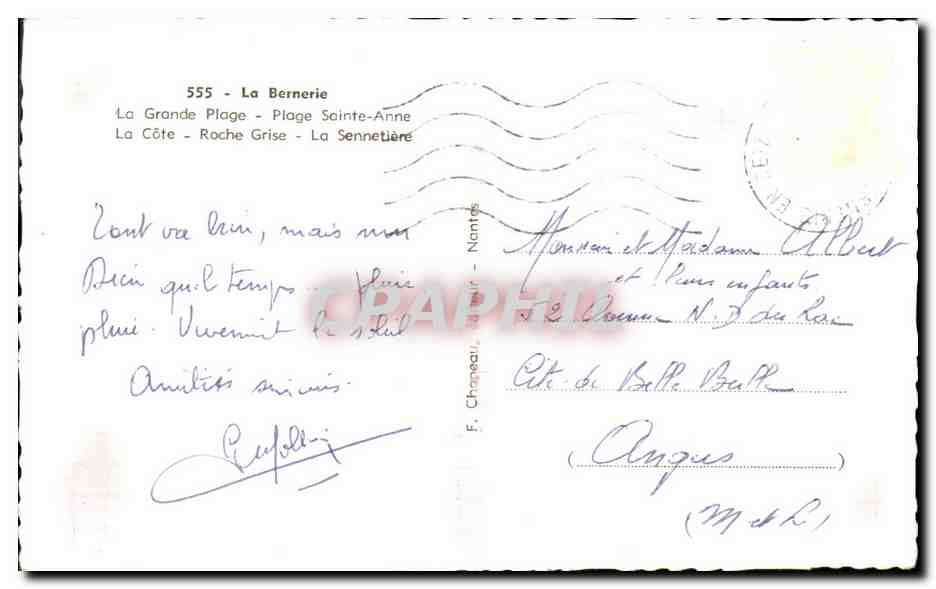 555 - La Bernerie
La Grande Plage - Plage Sainte-Anne
La Côte - Roche Grise - La Sennetière
Tout va bien, mais
temps. pluie
pluie. Vivement le soleil
Amitiés
F. Chapeau, - Nantes
CPAPHIL
EN RETZ
Monsieur et Madame Albert
et leurs enfants
52 Avenue N. D du Lac
Cité de Belle Beille
(Angers)
(M et L)